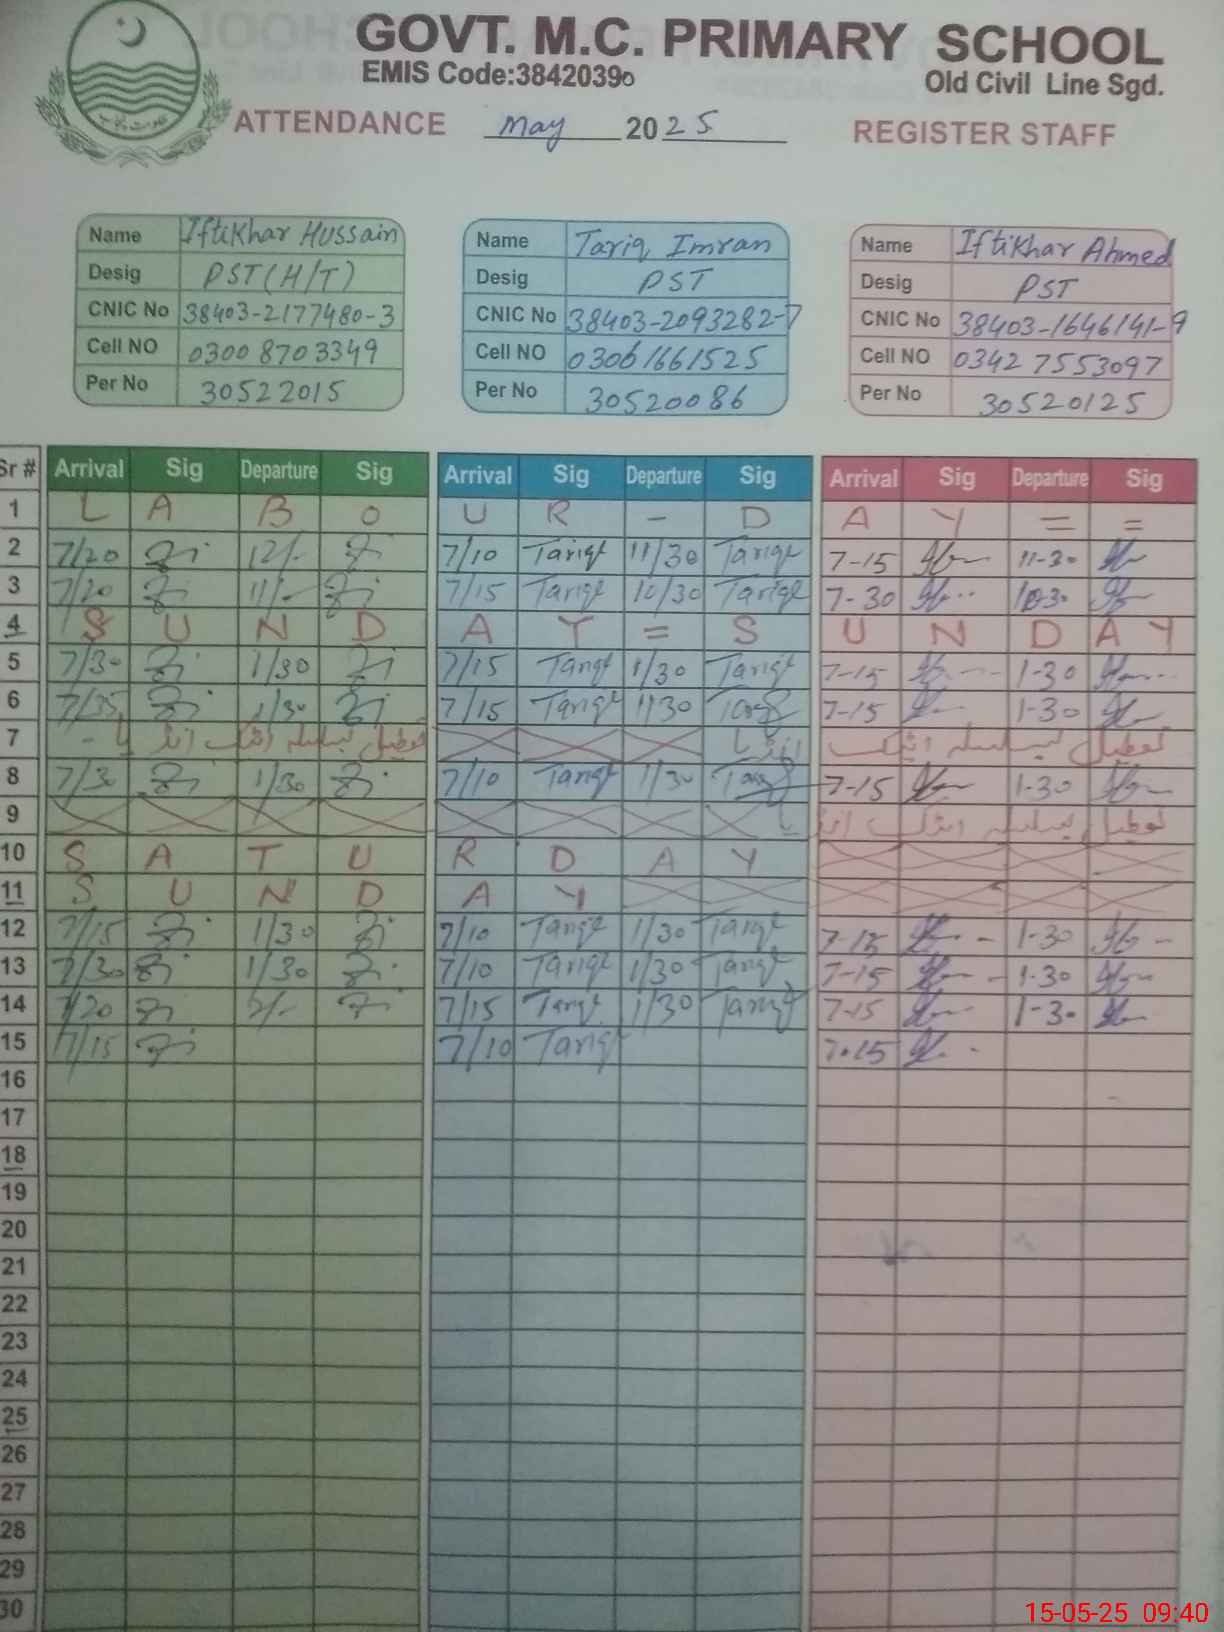 GOVT. M.C. PRIMARY SCHOOL
EMIS Code:38420390
Old Civil Line Sgd.
ATTENDANCE May 2025 REGISTER STAFF
Name Iftikhar Hussain
Desig PST (H/T)
CNIC No 38403-2177480-3
Cell NO 0300 8703349
Per No 30522015
Name Tariq Imran
Desig PST
CNIC No 38403-2093282-7
Cell NO 03061661525
Per No 30520086
Name Iftikhar Ahmed
Desig PST
CNIC No 38403-1646141-9
Cell NO 0342 7553097
Per No 30520125
Sr # Arrival Sig Departure Sig Arrival Sig Departure Sig Arrival Sig Departure Sig
1 L A B O U R - D A Y = =
2 7/20 12/- 7/10 11/30 7-15 11-30
3 7/20 11/- 7/15 10/30 7-30
4 S U N D A Y = S U N D A Y
5 7/30 1/30 7/15 1/30 7-15 1-30
6 7/35 1/30 7/15 1/30 7-15 1-30
7 تعطیل بسلسلہ اٹیک انڈیا - انڈیا تعطیل بسلسلہ اٹیک
8 7/30 1/30 7/10 1/30 7-15 1-30
9 تعطیل بسلسلہ اٹیک انڈیا
10 S A T U R D A Y
11 S U N D A Y
12 7/15 1/30 7/10 1/30 7-15 1-30
13 7/30 1/30 7/10 1/30 7-15 1-30
14 7/20 7/15 1/30 7-15 1-30
15 7/15 7/10 7-15
16
17
18
19
20
21
22
23
24
25
26
27
28
29
30
15-05-25 09:40